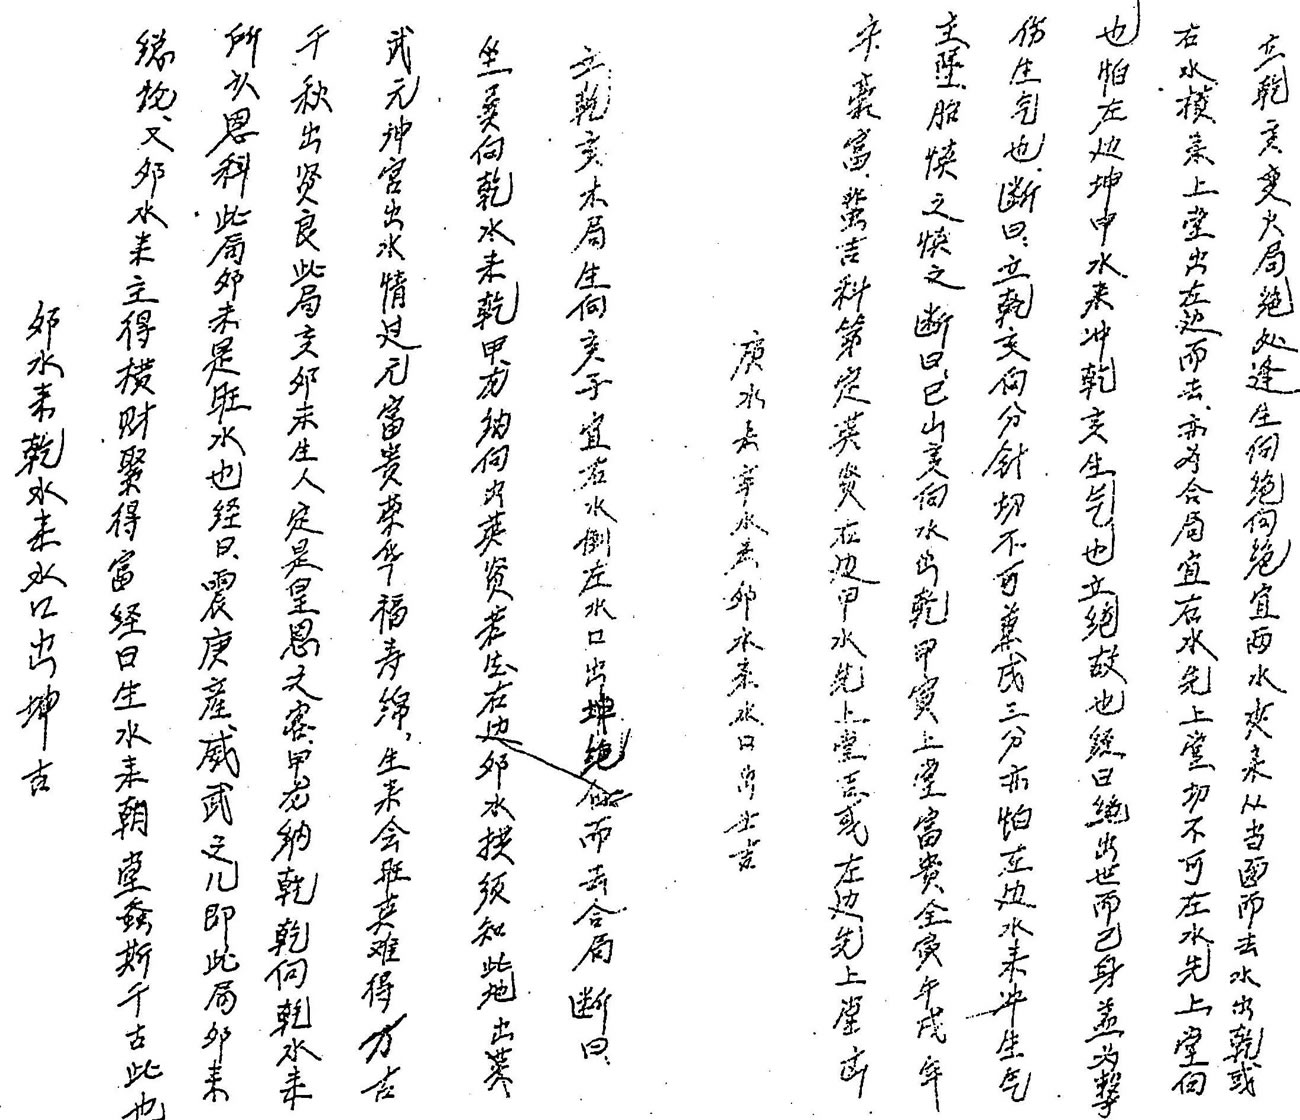 立乾亥变火局绝处逢生向绝向绝宜两水夹来从当面而去水出乾或
右水横来上堂出左边而去亦为合局宜右水先上堂切不可左水先上堂向
也怕左边坤申水来冲乾亥生气也立绝故也经曰绝出世而己身盖为击
伤生气也断曰立乾亥向分针切不可兼戌三分亦怕左边水来冲生气
主堕胎慎之慎之断曰巳山亥向水出乾甲寅上堂富贵全寅午戌年
来豪富蜚吉科第定英贤右边甲水先上堂吉或左边先上堂凶
庚水来辛水来卯水来水口出吉
立乾亥木局生向亥子宜右水倒左水口出坤绝向而去合局断曰
坐巽向乾水来乾甲龙纳向出英贤若生右边卯水拱须知此地出英
武元神宫出水情过元富贵荣华福寿绵生来会旺英难得方吉
千秋出贤良此局亥卯未生人定是皇恩之客甲龙纳乾乾向乾水来
所以恩科此局卯未是旺水也经曰震庚产威武之儿即此局卯来
缘故又卯水来主得横财聚得富经曰生水来朝堂螽斯千古此也
卯水来乾水来水口出坤吉